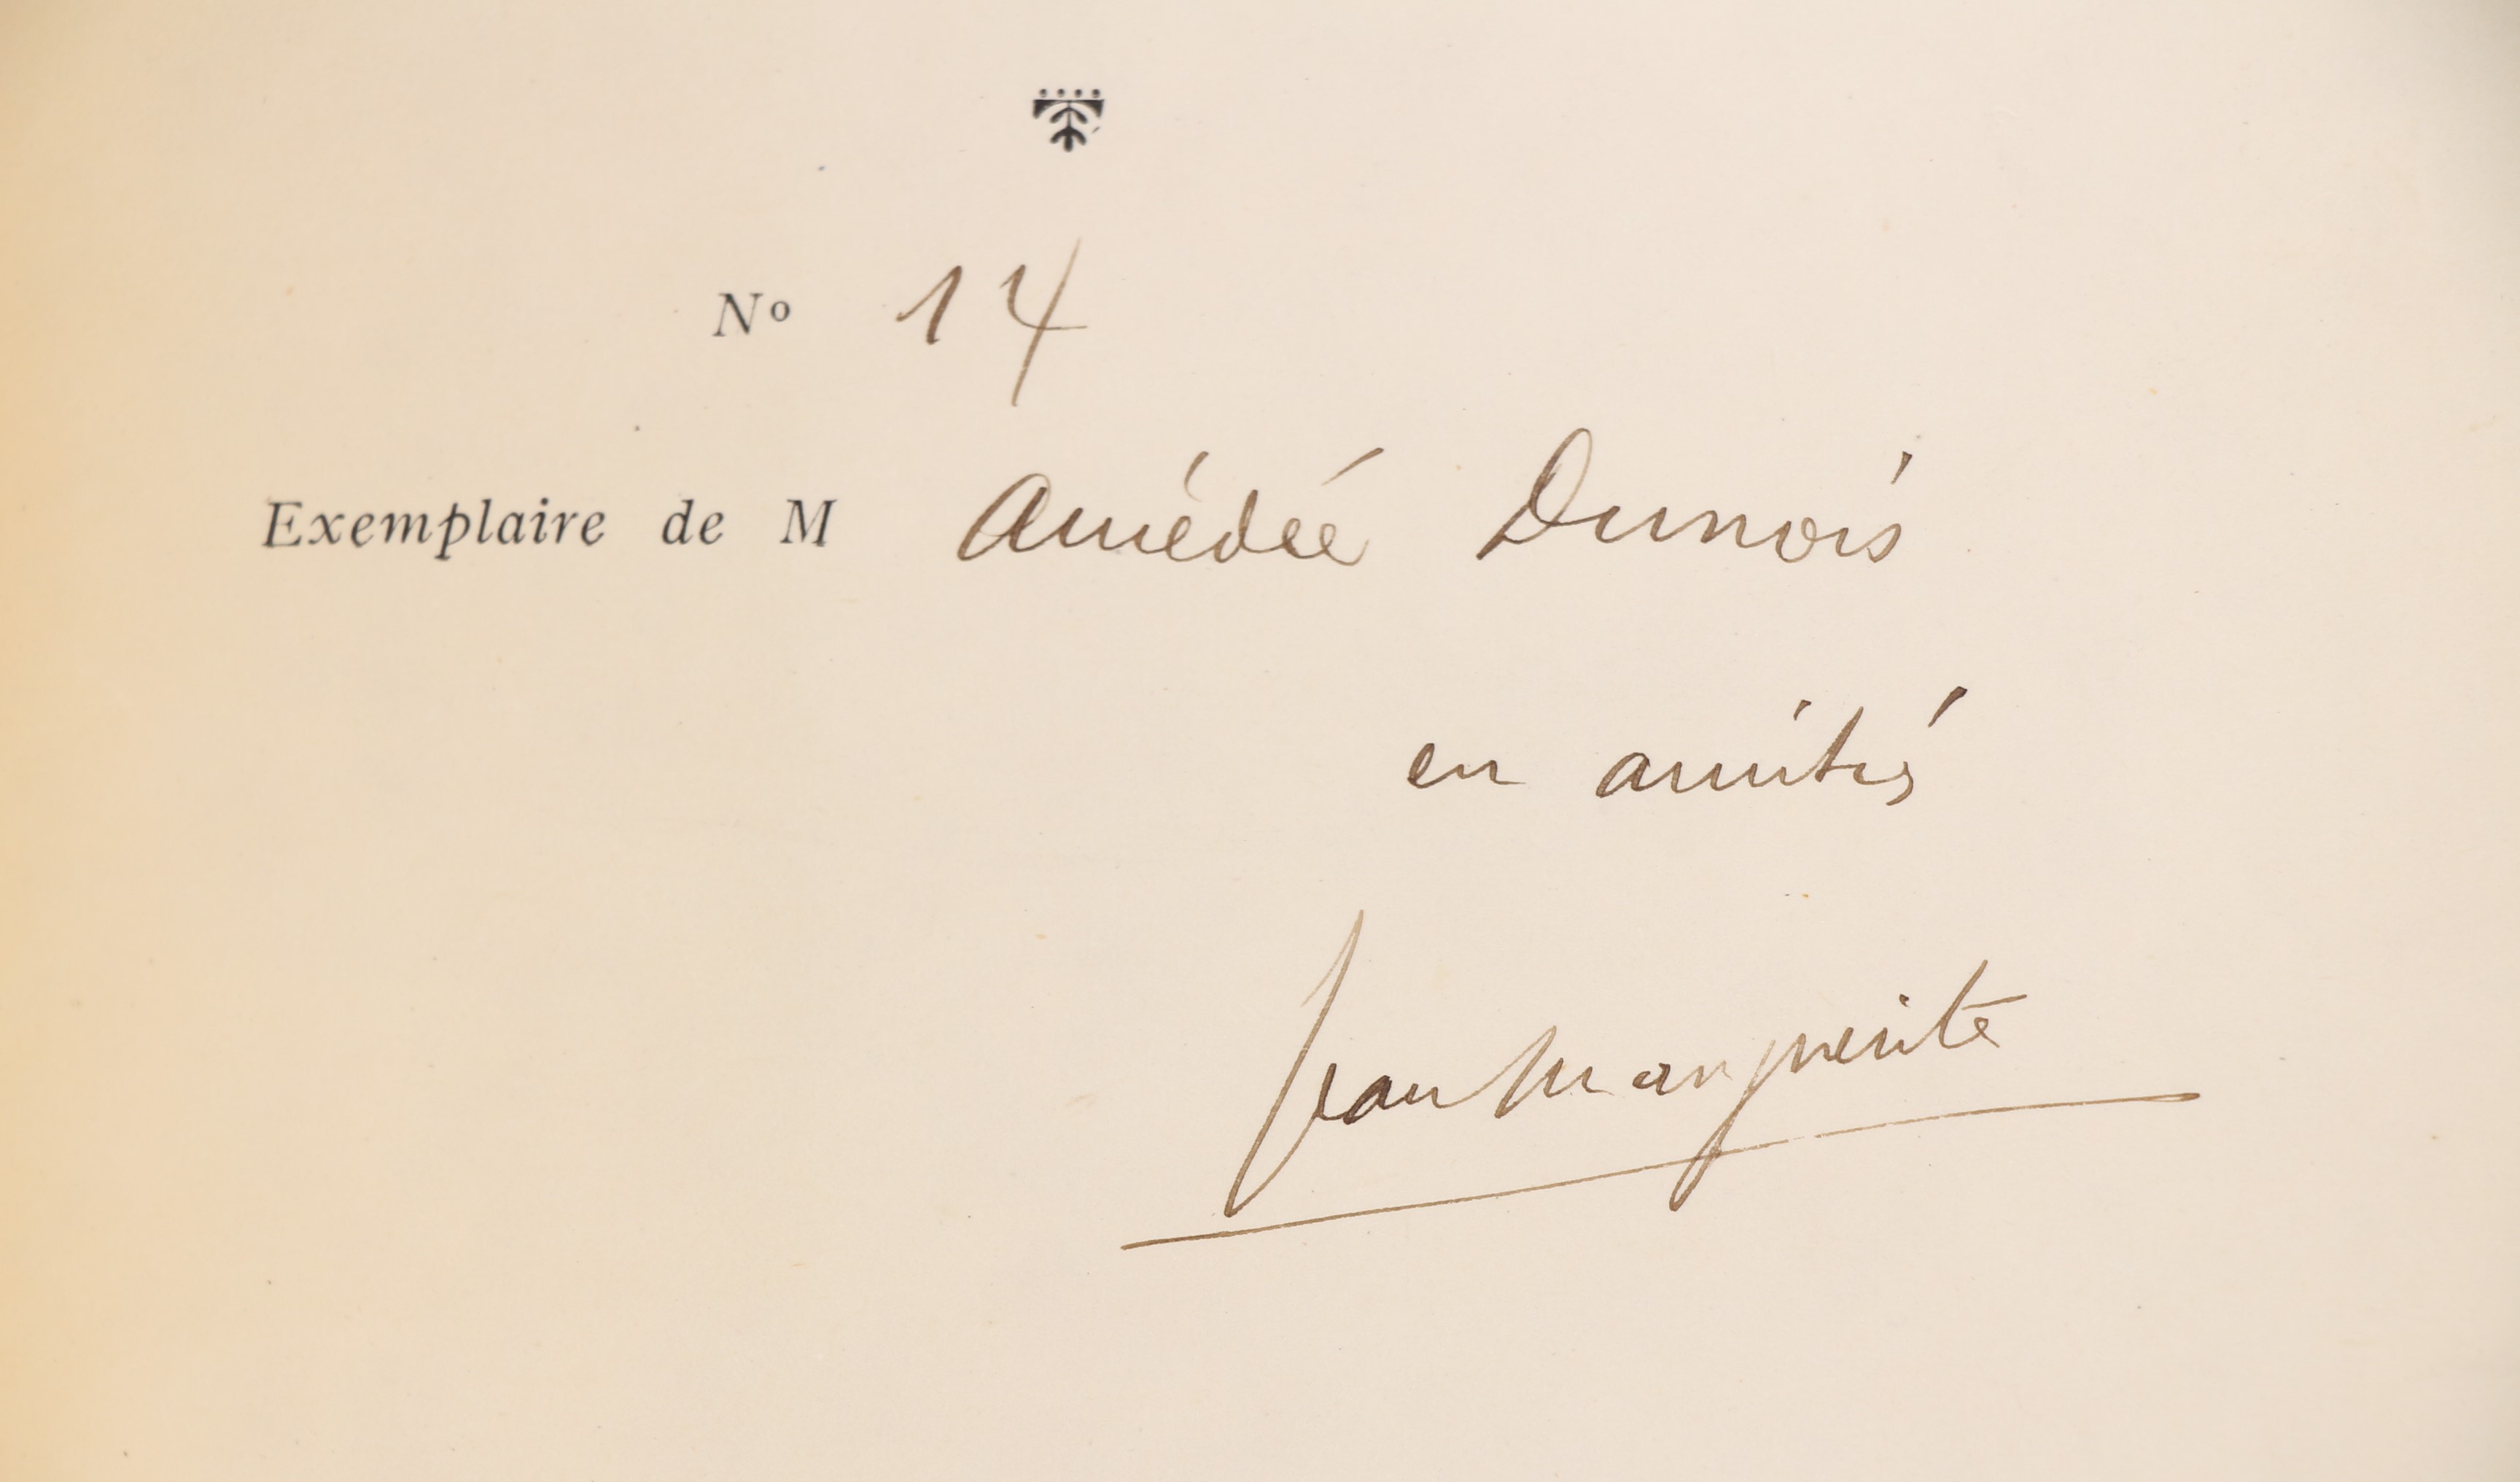 Nº 14
Exemplaire de M Amédée Dunois
en amitié
Jean Marguerite